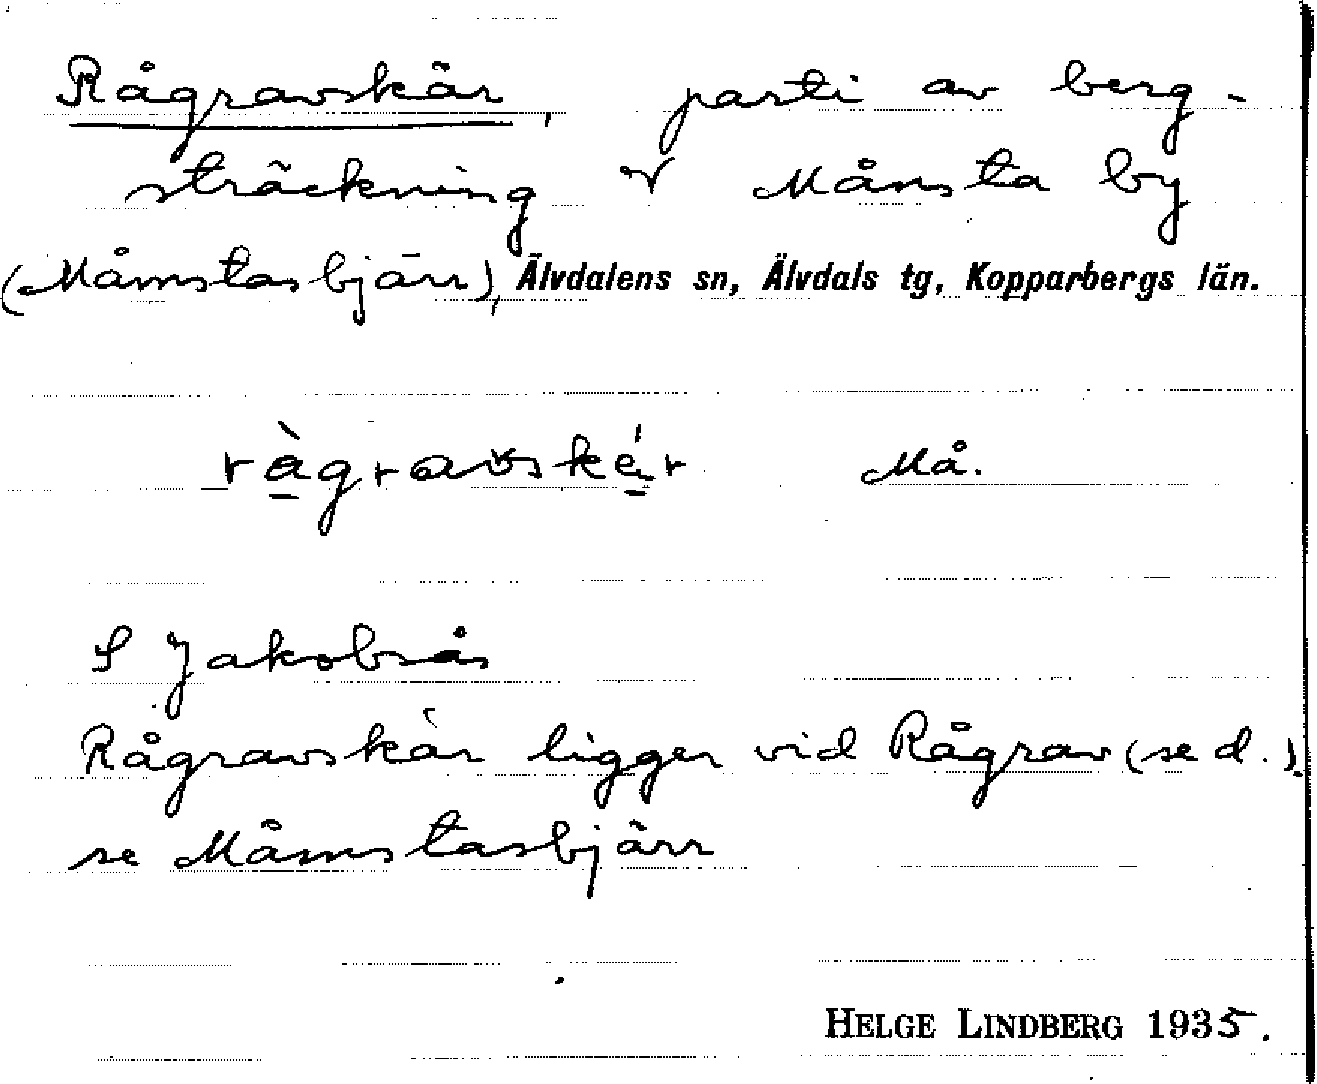 Rågravskär, parti av berg-
sträckning v Månsta by
(Måmstasbjärr), Älvdalens sn, Älvdals tg, Kopparbergs län.
ràgravskér Må.
S Jakobsås
Rågravskär ligger vid Rågrav (se d.).
se Måmstasbjärr
HELGE LINDBERG 1935.